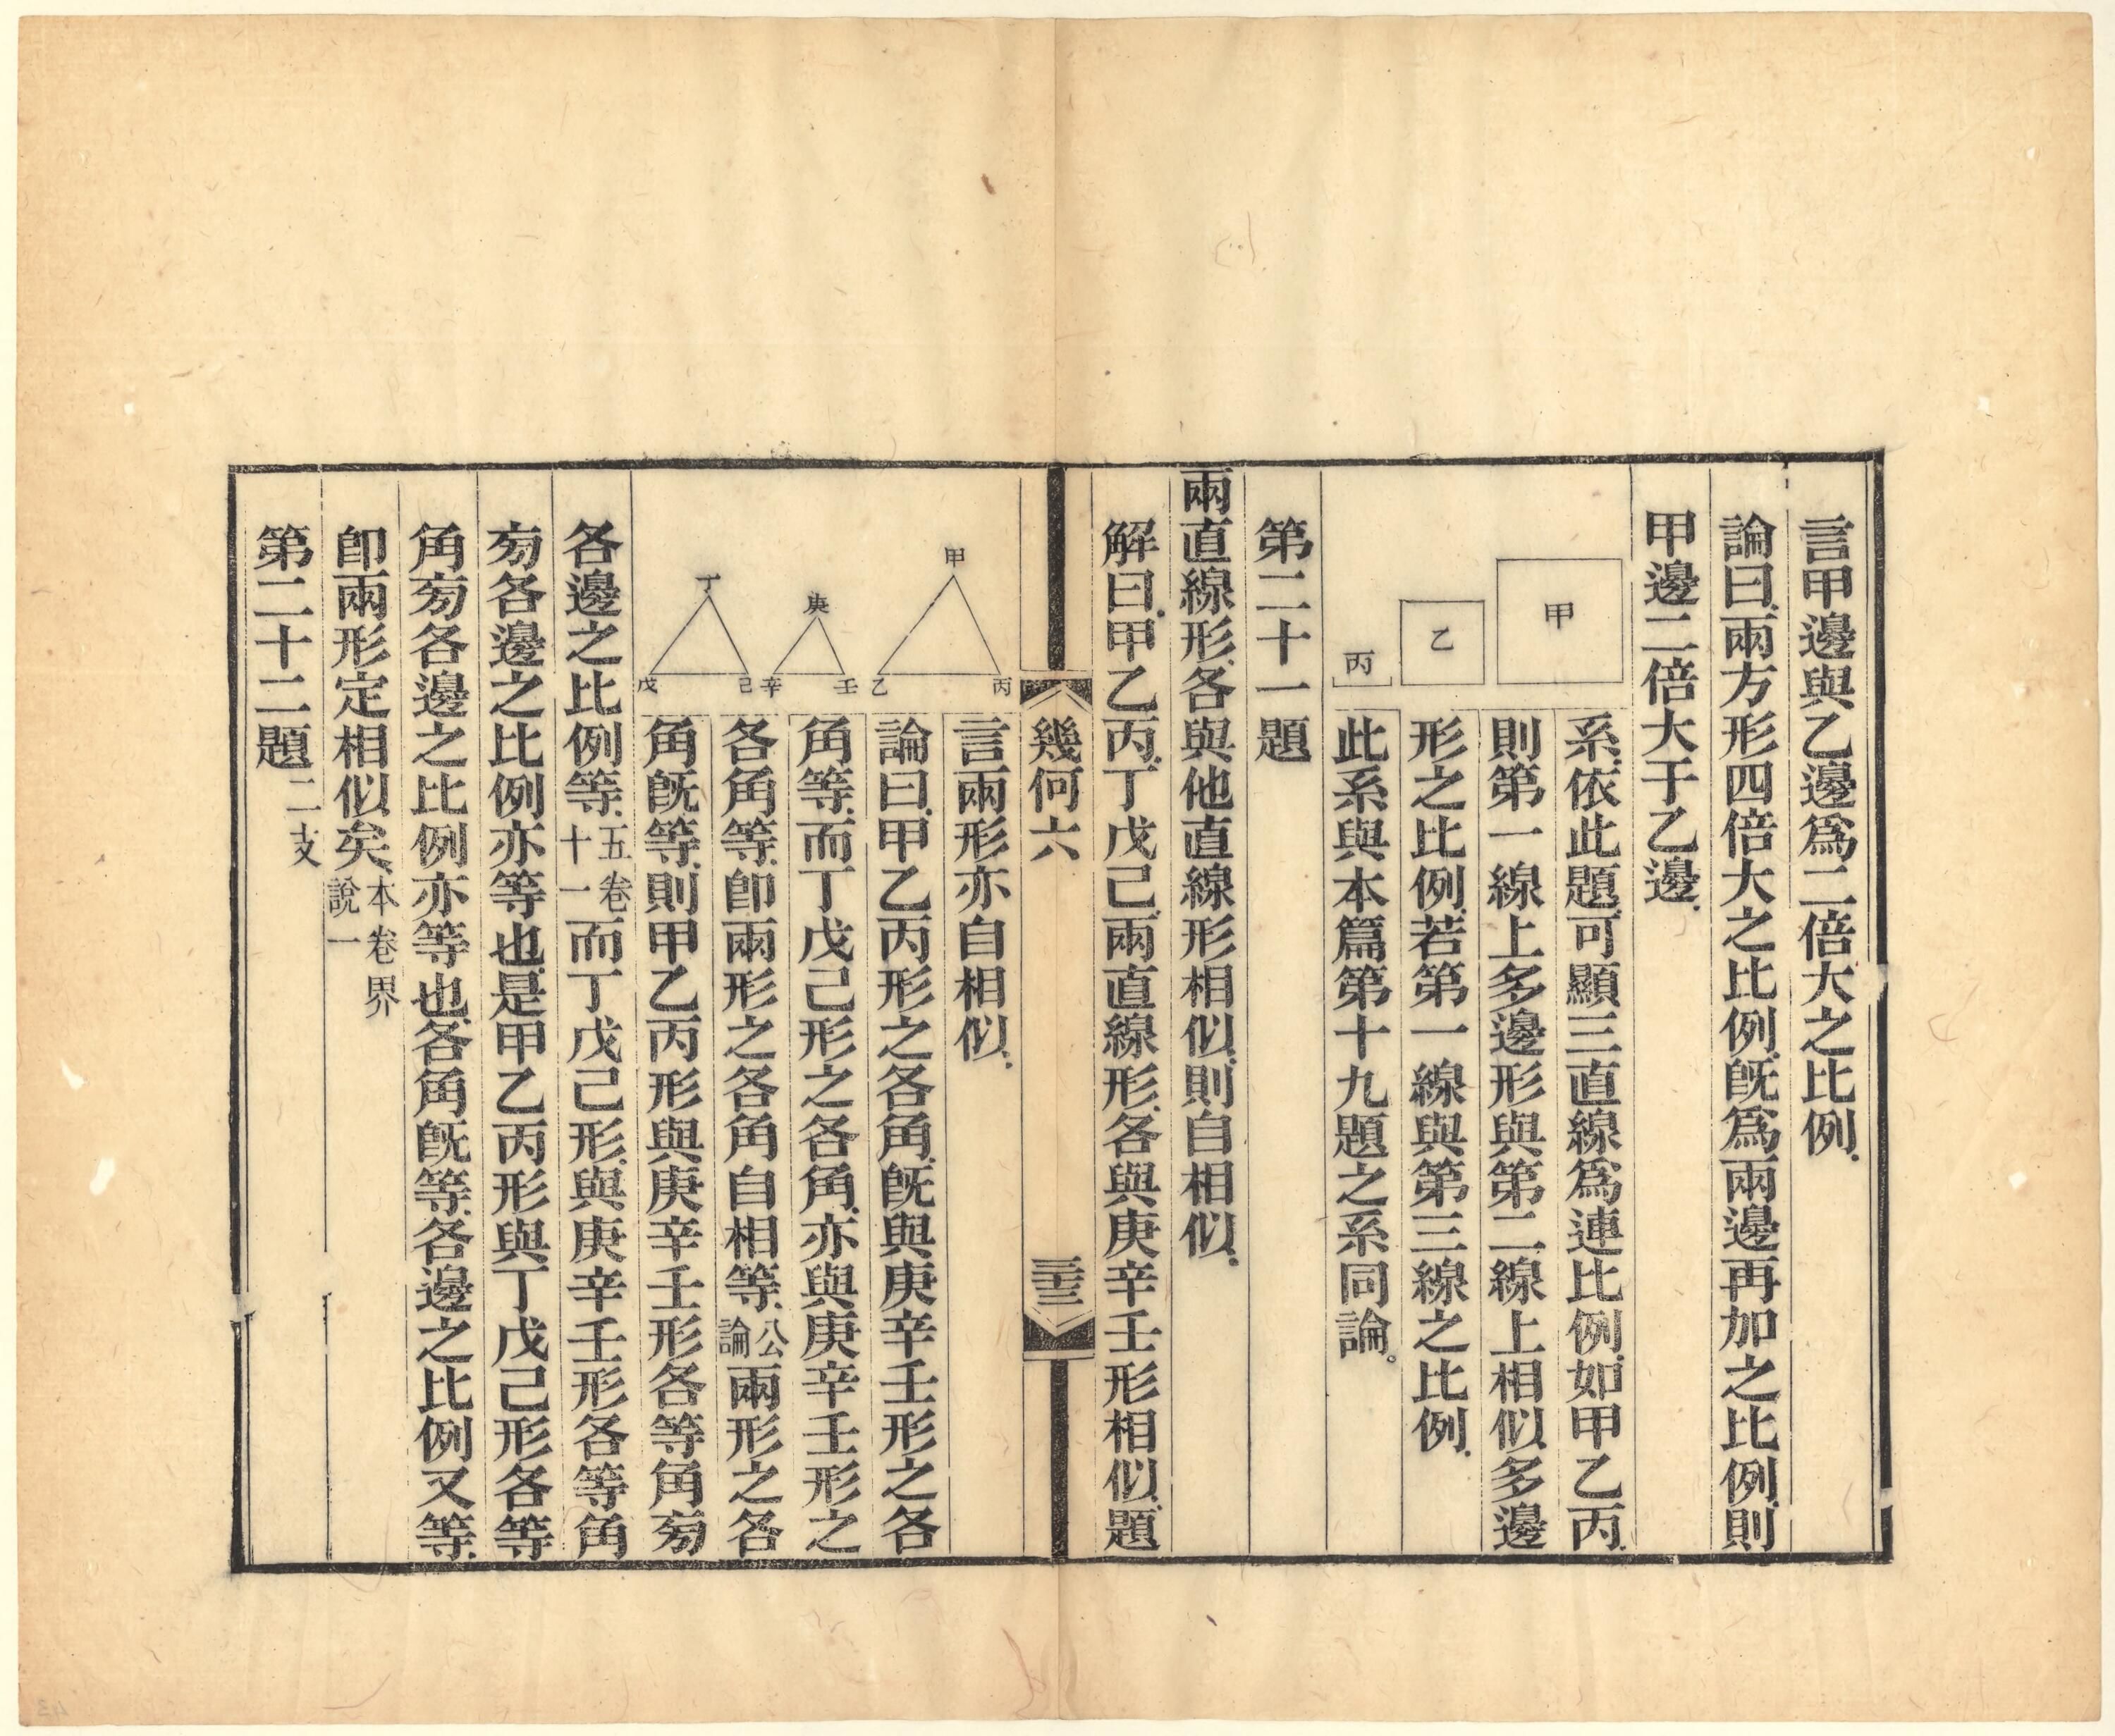 言甲邊與乙邊爲二倍大之比例.
論曰.兩方形四倍大之比例.旣爲兩邊再加之比例.則
甲邊二倍大于乙邊.
甲
乙
丙
系.依此題.可顯三直線爲連比例.如甲乙丙.
則第一線上多邊形與第二線上相似多邊
形之比例.若第一線與第三線之比例.
此系與本篇第十九題之系同論。
第二十一題
兩直線形.各與他直線形相似.則自相似.
解曰.甲乙丙.丁戊己.兩直線形.各與庚辛壬形相似.題
幾何六
三十三
甲
乙
丙
庚
辛
壬
丁
戊
己
言兩形亦自相似.
論曰.甲乙丙形之各角.旣與庚辛壬形之各
角等.而丁戊己形之各角.亦與庚辛壬形之
各角等.卽兩形之各角自相等.公論八兩形之各
角旣等.則甲乙丙形與庚辛壬形各等角旁
各邊之比例等.五卷十一而丁戊己形.與庚辛壬形各等角
旁各邊之比例亦等也.是甲乙丙形與丁戊己形各等
角旁各邊之比例亦等也.各角旣等.各邊之比例又等.
卽兩形定相似矣.本卷界說一
第二十二題二支